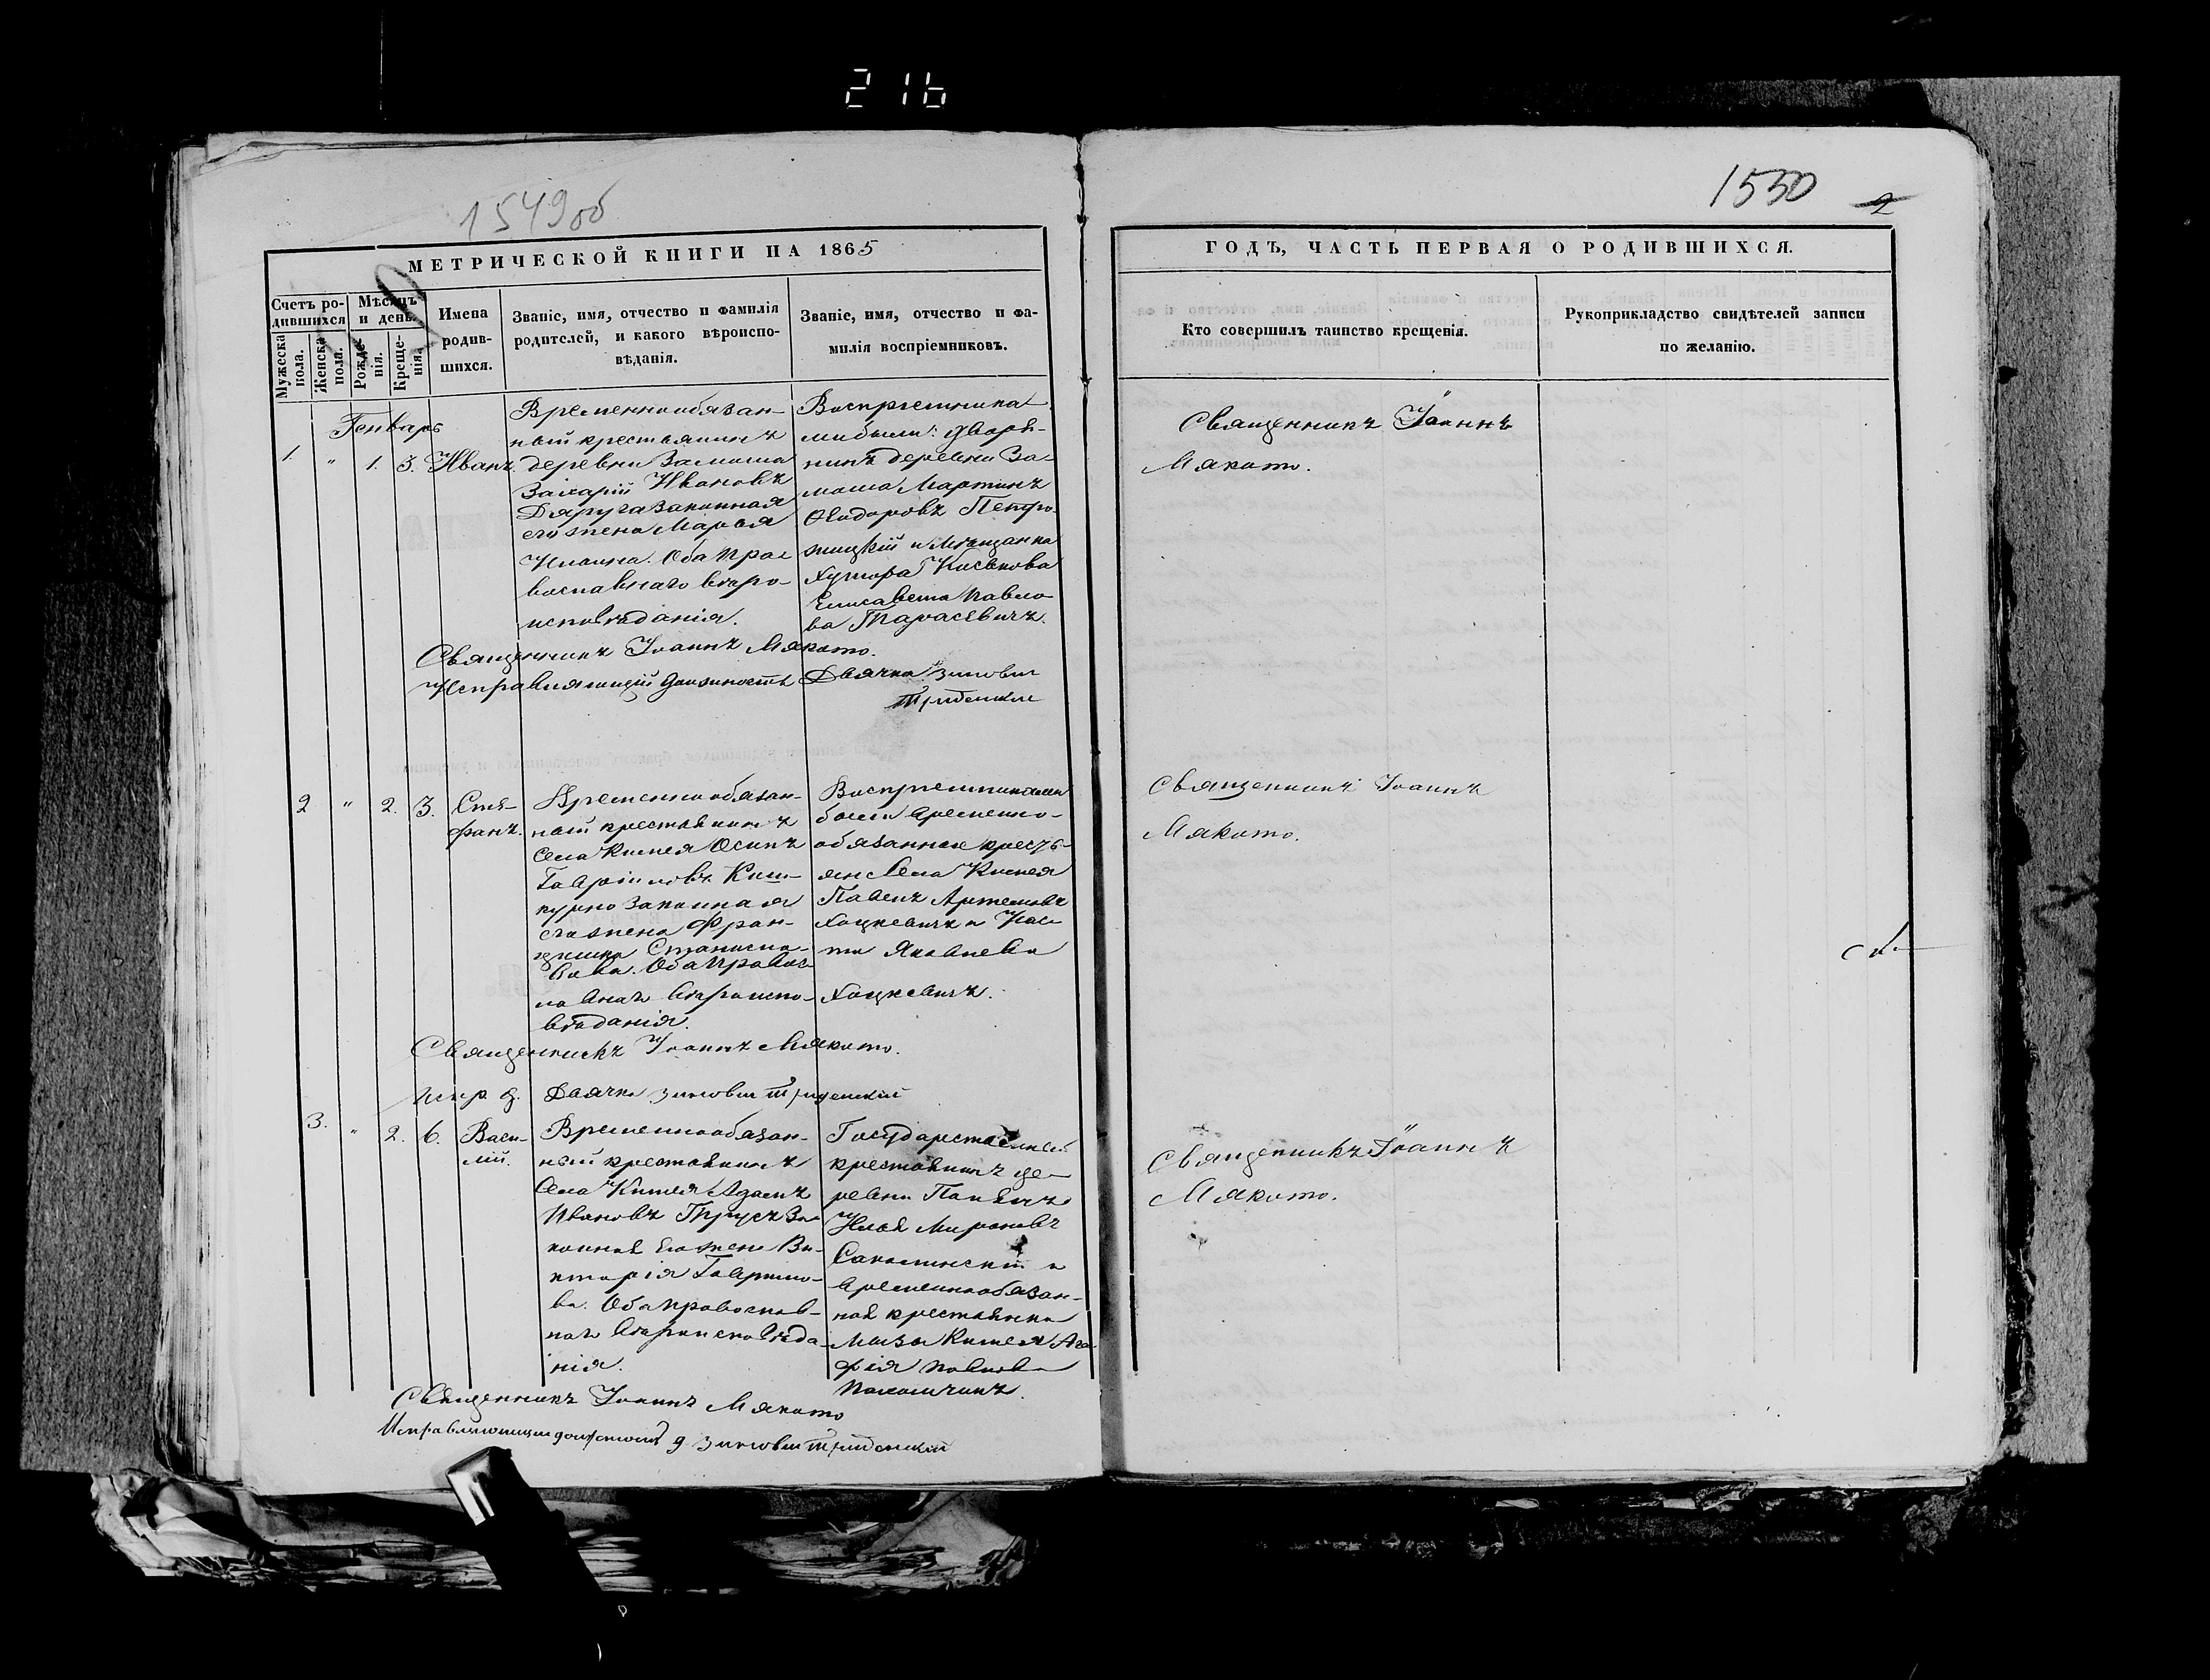 216
1549об
1550
2
МЕТРИЧЕСКОЙ КНИГИ НА 1865
ГОДЪ, ЧАСТЬ ПЕРВАЯ О РОДИВШИХСЯ.
Счетъ родившихся
Мужеска пола.
Женска пола.
Мѣсяцъ и день.
Рожденія.
Крещенія.
Имена родившихся.
Званіе, имя, отчество и фамилія
родителей, и какого вѣроиспо-
вѣданія.
Званіе, имя, отчество и фа-
милія воспріемниковъ.
Кто совершилъ таинство крещенія.
Рукоприкладство свидѣтелей записи
по желанію.
Генварь
1. " 1. 3. Иванъ.
Временнообязан-
ный крестьянинъ
деревни Замоша
Захарій Ивановъ
Дяруга законная
его жена Марья
Ильина. Оба пра-
вославнаго вѣро-
исповѣданія.
Воспріемника-
ми были: дворя-
нинъ деревни За-
моша Мартинъ
Ѳеодоровъ
и Мѣщанка
Хутора
Елисавета Павло-
ва Тарасевичъ.
Священникъ Іоаннъ
Мякото.
Священникъ Іоаннъ Мякото.
Исправляющій должность Дьячка Зиновій
2 " 2. 3. Сте-
фанъ.
Временнообязан-
ный крестьянинъ
Села Кишея Осипъ
Гавріиловъ
законная
его жена Фран-
цишка Станисла-
вова. Оба правос-
лавнаго вѣроиспо-
вѣданія.
Воспріемниками
были временно-
обязанные кресть-
яне Села Кишея
Павелъ Артемовъ
Хоцкевичъ и
Яковлева
Хоцкевичъ.
Священникъ Іоаннъ
Мякото.
Священникъ Іоаннъ Мякото.
Испр. д. Дьячка Зиновій
3. " 2. 6. Васи-
лій.
Временнообязан-
ный крестьянинъ
Села Кишея Адамъ
Ивановъ Трусъ За-
конная его жена Ви-
кторія Гаврило-
ва. Оба православ-
наго вѣроисповѣда-
нія.
Государственный
крестьянинъ де-
ревни
Илья Мироновъ
и
временнообязан-
ная крестьянка
Мызы Кишея Ага-
фія Павлова
Священникъ Іоаннъ
Мякото.
Священникъ Іоаннъ Мякото
Исправляющій должность д. Зиновій